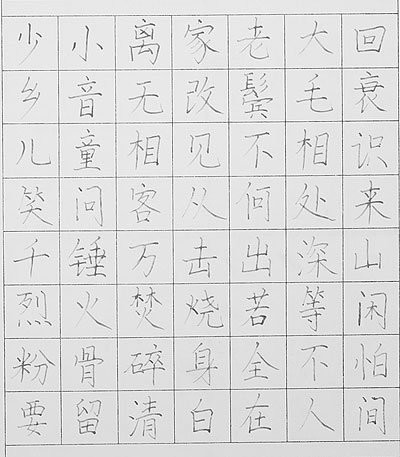 少小离家老大回
乡音无改鬓毛衰
儿童相见不相识
笑问客从何处来
千锤万击出深山
烈火焚烧若等闲
粉骨碎身全不怕
要留清白在人间